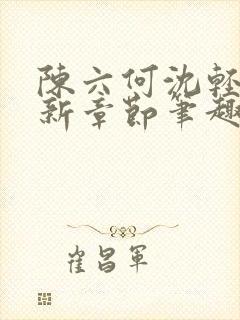 陳六何沈輕
新章節筆趣
崔昌軍